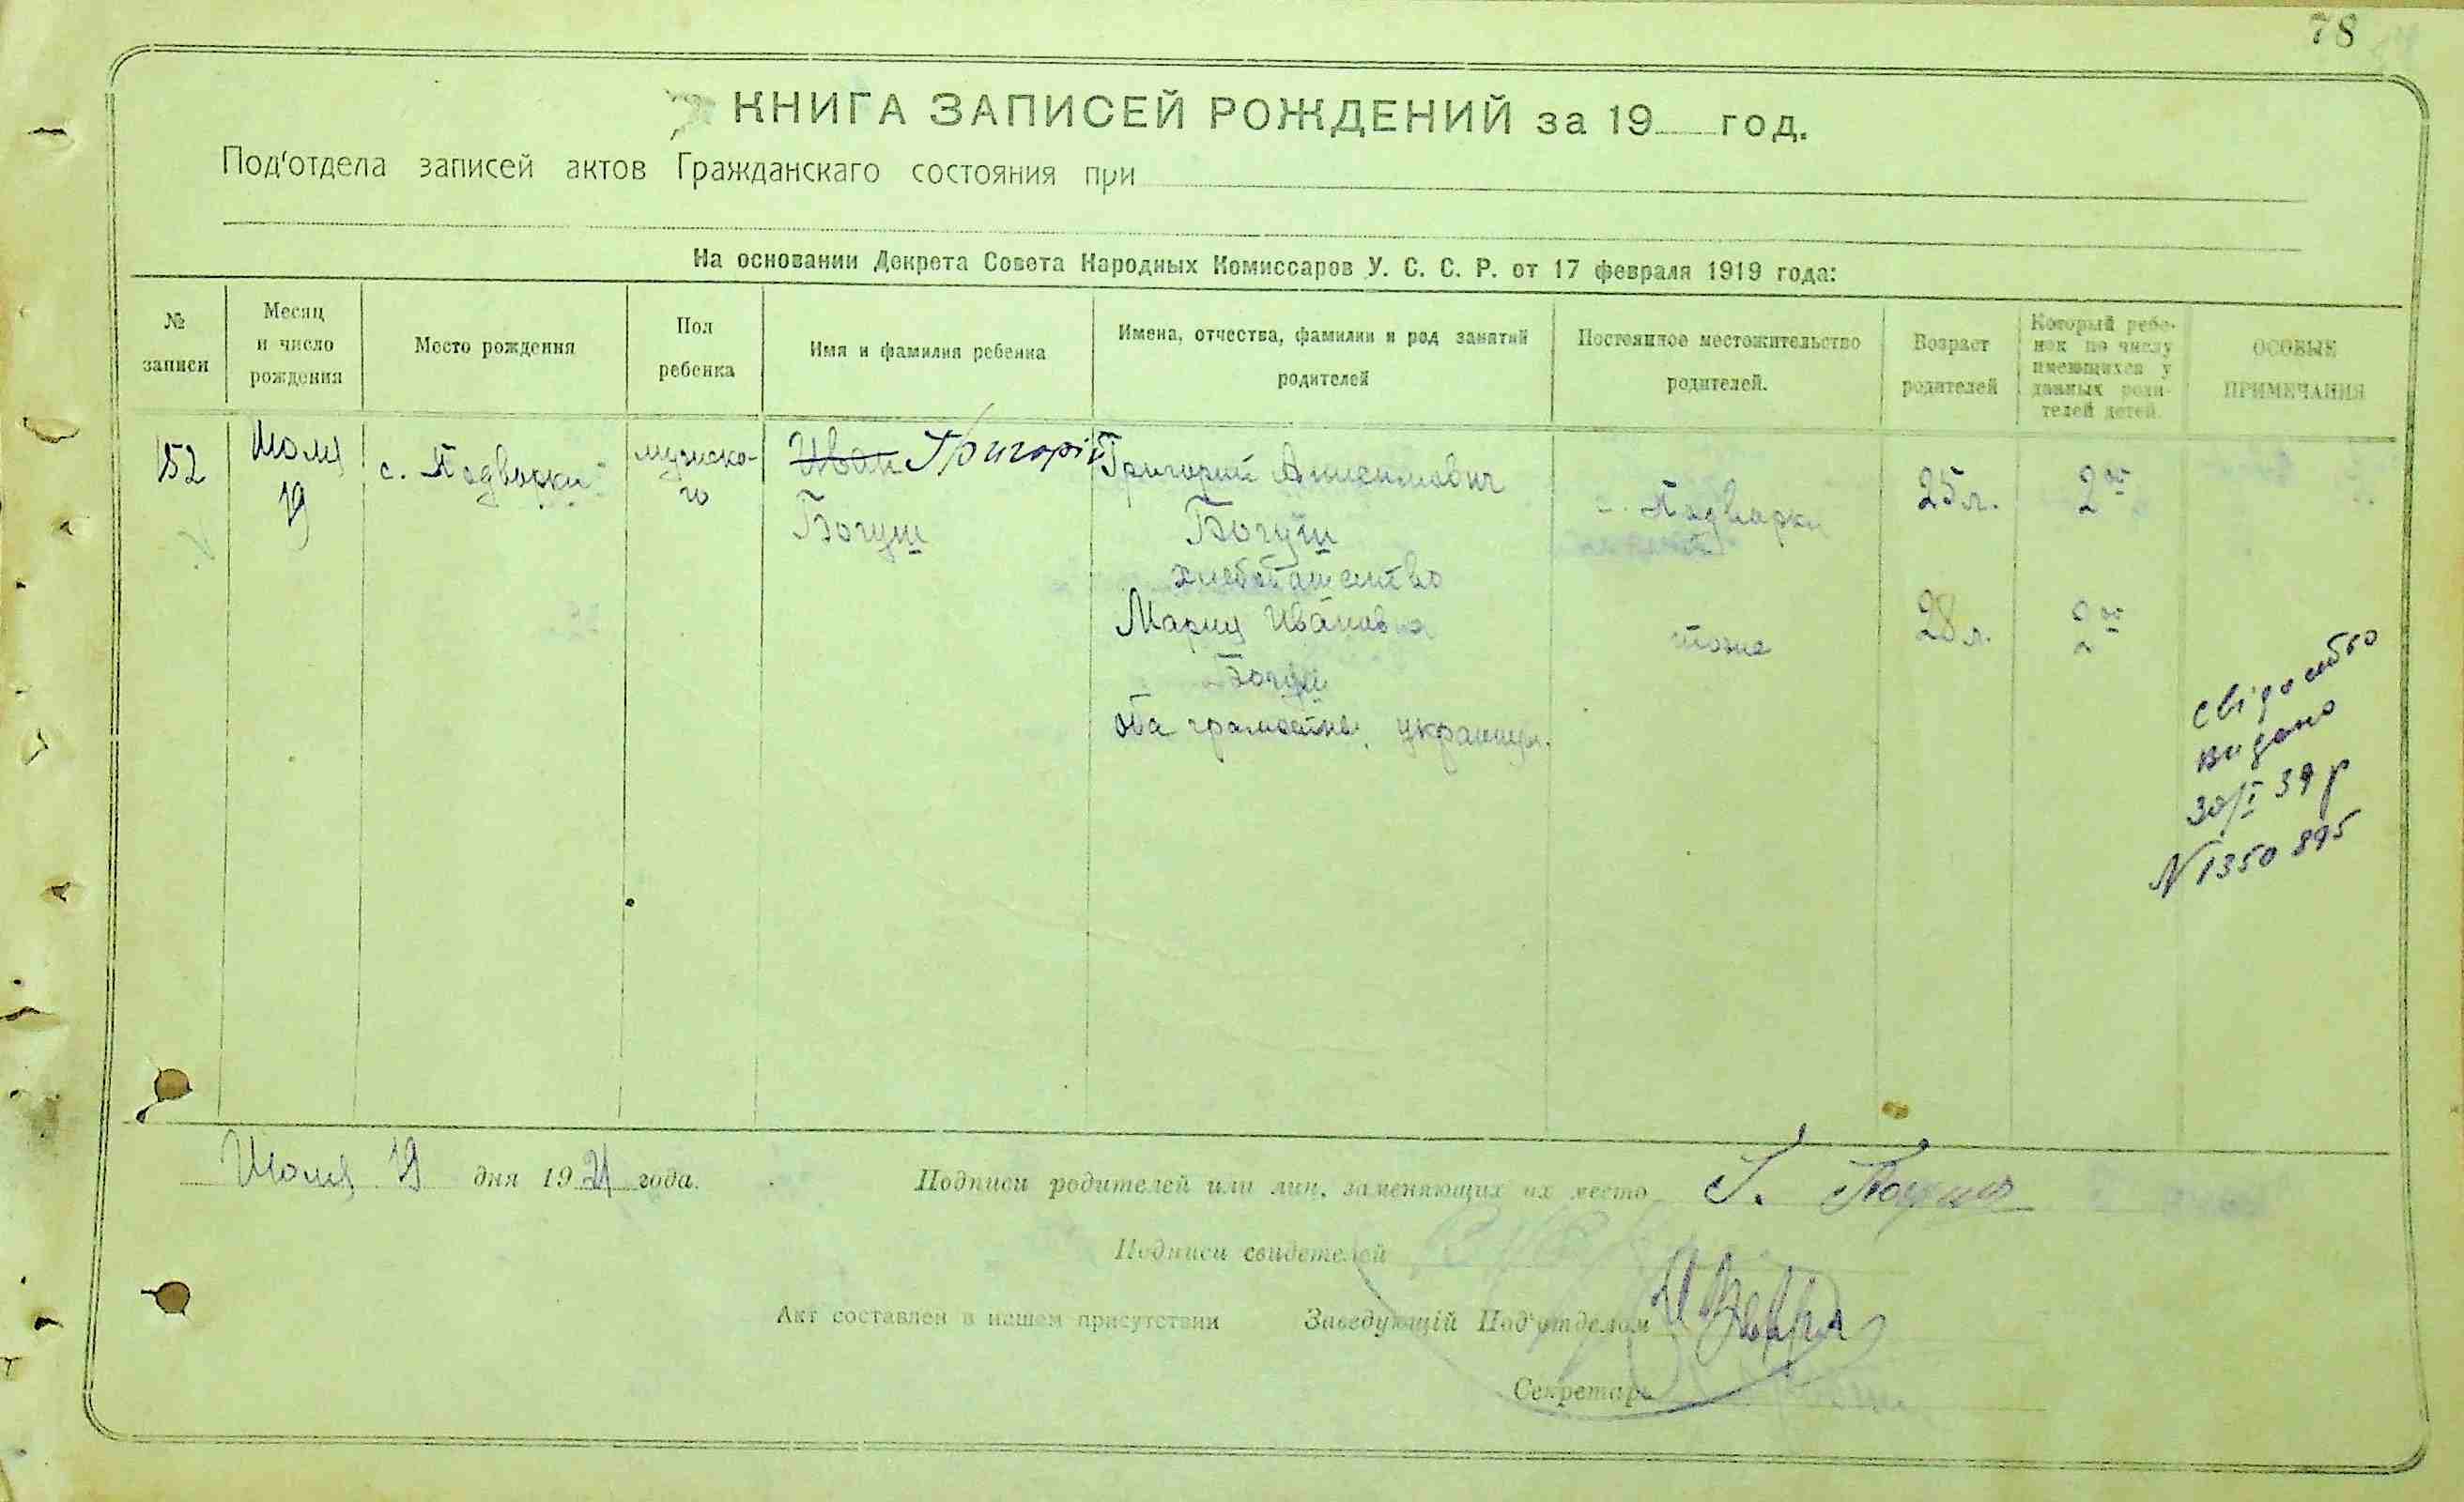 78
КНИГА ЗАПИСЕЙ РОЖДЕНИЙ за 19 год.
Под'отдела записей актов Гражданскаго состояния при
На основании Декрета Совета Народных Комиссаров У. С. С. Р. от 17 февраля 1919 года:
№ записи
Месяц и число рождения
Место рождения
Пол ребенка
Имя и фамилия ребенка
Имена, отчества, фамилии и род занятий родителей
Постоянное местожительство родителей.
Возраст родителей
Который ребенок по числу имеющихся у данных родителей детей.
ОСОБЫЕ ПРИМЕЧАНИЯ
152
Июля 19
с. Подворки
мужско-
го
Иван Григорій
Богуш
Григорий Анисимович
Богуш
хлебопашество
Мария Ивановна
Богуш
оба грамотны, украинцы.
с. Подворки
тоже
25 л.
28 л.
2ое
2ое
свідоцтво
видано
30/I 39 р
N 1350895
Июля 19 дня 1921 года.
Подписи родителей или лиц, заменяющих их место Г. Богуш
Подписи свидетелей
Акт составлен в нашем присутствии Заведующій Под'отделом
Секретарь